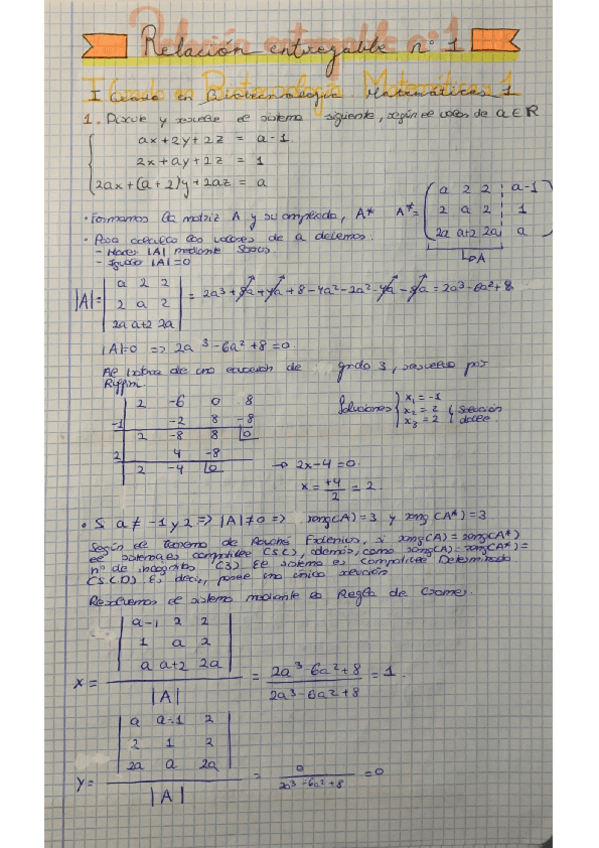 Relación entregable nº 1
I Grado en Biotecnología Matemáticas 1
1. Discute y resuelve el sistema siguiente, según el valor de a∈R
ax+2y+2z = a-1
2x+ay+2z = 1
2ax+(a+2)y+2az = a
• Formamos la matriz A y su ampliada, A*
A* = ( a 2 2 | a-1
2 a 2 | 1
2a a+2 2a | a )
A
• Para calcular los valores de a debemos.
- Hacer |A| mediante Sarrus
- Igualar |A|=0
|A| = | a 2 2
2 a 2
2a a+2 2a | = 2a³+8a+4a+8-4a²-2a²-4a-8a = 2a³-6a²+8
|A|=0 => 2a³-6a²+8=0.
Al tratarse de una ecuación de grado 3, resuelvo por
Ruffini.
2 -6 0 8
-1 -2 8 -8
2 -8 8 0
2 4 -8
2 -4 0
Soluciones { x₁ = -1
x₂ = 2
x₃ = 2 } solución doble
→ 2x-4=0.
x = +4/2 = 2.
• Si a ≠ -1 y 2 => |A|≠0 => rang(A)=3 y rang(A*)=3
Según el Teorema de Rouché Frobenius, si rang(A)=rang(A*)
el sistema es compatible (S.C), además, como rang(A)=rang(A*)=
nº de incógnitas (3) El sistema es Compatible Determinado
(S.C.D) Es decir, posee una única solución.
Resolvemos el sistema mediante la Regla de Cramer.
x = | a-1 2 2
1 a 2
a a+2 2a | / |A| = 2a³-6a²+8 / 2a³-6a²+8 = 1.
y = | a a-1 2
2 1 2
2a a 2a | / |A| = 0 / 2a³-6a²+8 = 0